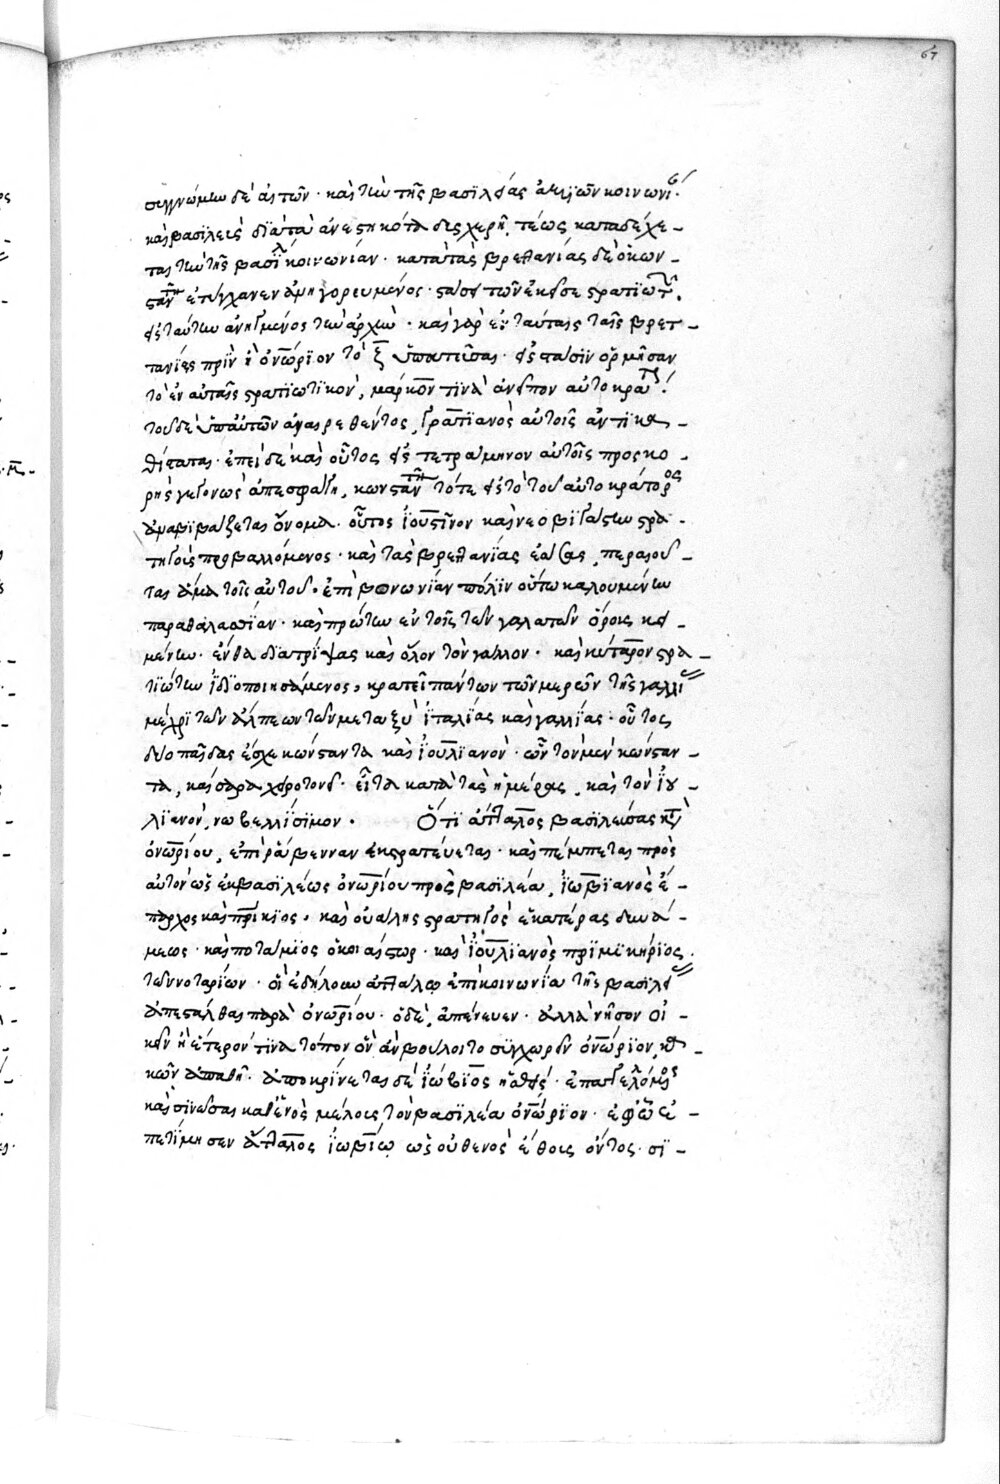 67
συγγνώμην δὲ αἰτῶν· καὶ τὴν τῆς βασιλείας ἀξιῶν κοινωνί·
καὶ βασιλεὺς διὰ τὰ ἀνεστηκότα δυσχερῆ, τέως καταδέχε-
ται τὴν τῆς βασιλ κοινωνίαν· κατὰ τὰς βρεττανίας δὲ ὁ κων-
σταντῖ ἐτύγχανεν ἀνηγορευμένος· στάσει τῶν ἐκεῖσε στρατιωτ·
εἰς ταύτην ἀνηγμένος τὴν ἀρχὴν· καὶ γὰρ ἐν ταύταις ταῖς βρετ-
τανίαις πρὶν ἢ ὀνώριον τὸ ζ ὑπατεῦσαι· εἰς στάσιν ὁρμῆσαν
τὸ ἐν αὐταῖς στρατιωτικὸν, μάρκον τινὰ ἀνεῖπον αὐτοκράτ·
τοῦ δὲ ὑπ' αὐτῶν ἀναιρεθέντος, γρατιανὸς αὐτοῖς ἀντικα-
θίσταται· ἐπεὶ δὲ καὶ οὗτος εἰς τετράμηνον αὐτοῖς προσκο-
ρὴς γεγονὼς ἀπεσφάγη, κωνσταντῖ τότε εἰς τὸ τοῦ αὐτοκράτορος
ἀναβιβάζεται ὄνομα· οὗτος ἰουστῖνον καὶ νεοβιγάστην στρα-
τηγοὺς προβαλλόμενος· καὶ τὰς βρεττανίας ἐάσας, περαιοῦ-
ται ἅμα τοῖς αὐτοῦ· ἐπὶ βονωνίαν πόλιν οὕτω καλουμένην
παραθαλασσίαν· καὶ πρώτην ἐν τοῖς τῶν γαλατῶν ὅροις κει-
μένην· ἔνθα διατρίψας καὶ ὅλον τὸν γάλλον· καὶ ἀκύτανον στρα-
τιώτην ἰδιοποιησάμενος, κρατεῖ πάντων τῶν μερῶν τῆς γαλλί
μέχρι τῶν ἄλπεων τῶν μεταξὺ ἰταλίας καὶ γαλλίας· οὗτος
δύο παῖδας ἔσχε κώνσταντα καὶ ἰουλιανὸν· ὧν τὸν μὲν κώνσταν-
τα, καίσαρα χειροτονεῖ· εἶτα κατὰ τὰς ἡμέρας, καὶ τὸν ἰου-
λιανὸν, νωβελλίσιμον· Ὅτι ἄτταλος βασιλεύσας κατὰ
ὀνωρίου, ἐπὶ ῥάβενναν ἐκστρατεύεται· καὶ πέμπεται πρὸς
αὐτὸν ὡς ἐκ βασιλέως ὀνωρίου πρὸς βασιλέα, ἰωβιανὸς ἔ-
παρχος καὶ πατρίκιος· καὶ οὐάλης στρατηγὸς ἑκατέρας δυνά-
μεως· καὶ ποτάμιος ὁ κοιαίστωρ· καὶ ἰουλιανὸς πριμικήριος
τῶν νοταρίων· οἳ ἐδήλουν ἀττάλῳ ἐπὶ κοινωνίᾳ τῆς βασιλεί
ἀπεστάλθαι παρὰ ὀνωρίου· ὁ δὲ, ἀπένευεν· ἀλλὰ νῆσον οἰ-
κεῖν ἢ ἕτερόν τινα τόπον ὃν ἂν βούλοιτο συγχωρεῖν ὀνώριον, κα-
κῶν ἀπαθῆ· ἀποκρίνεται δὲ ἰώβιος ἡσθεὶς· ἐπαγγελόμενος
καὶ σινῶσαι καθ' ἑνὸς μέλους τὸν βασιλέα ὀνώριον· ἐφ' ᾧ ἐ-
πετίμησεν ἄτταλος ἰωβίῳ ὡς οὐθενὸς ἔθους ὄντος· σι-